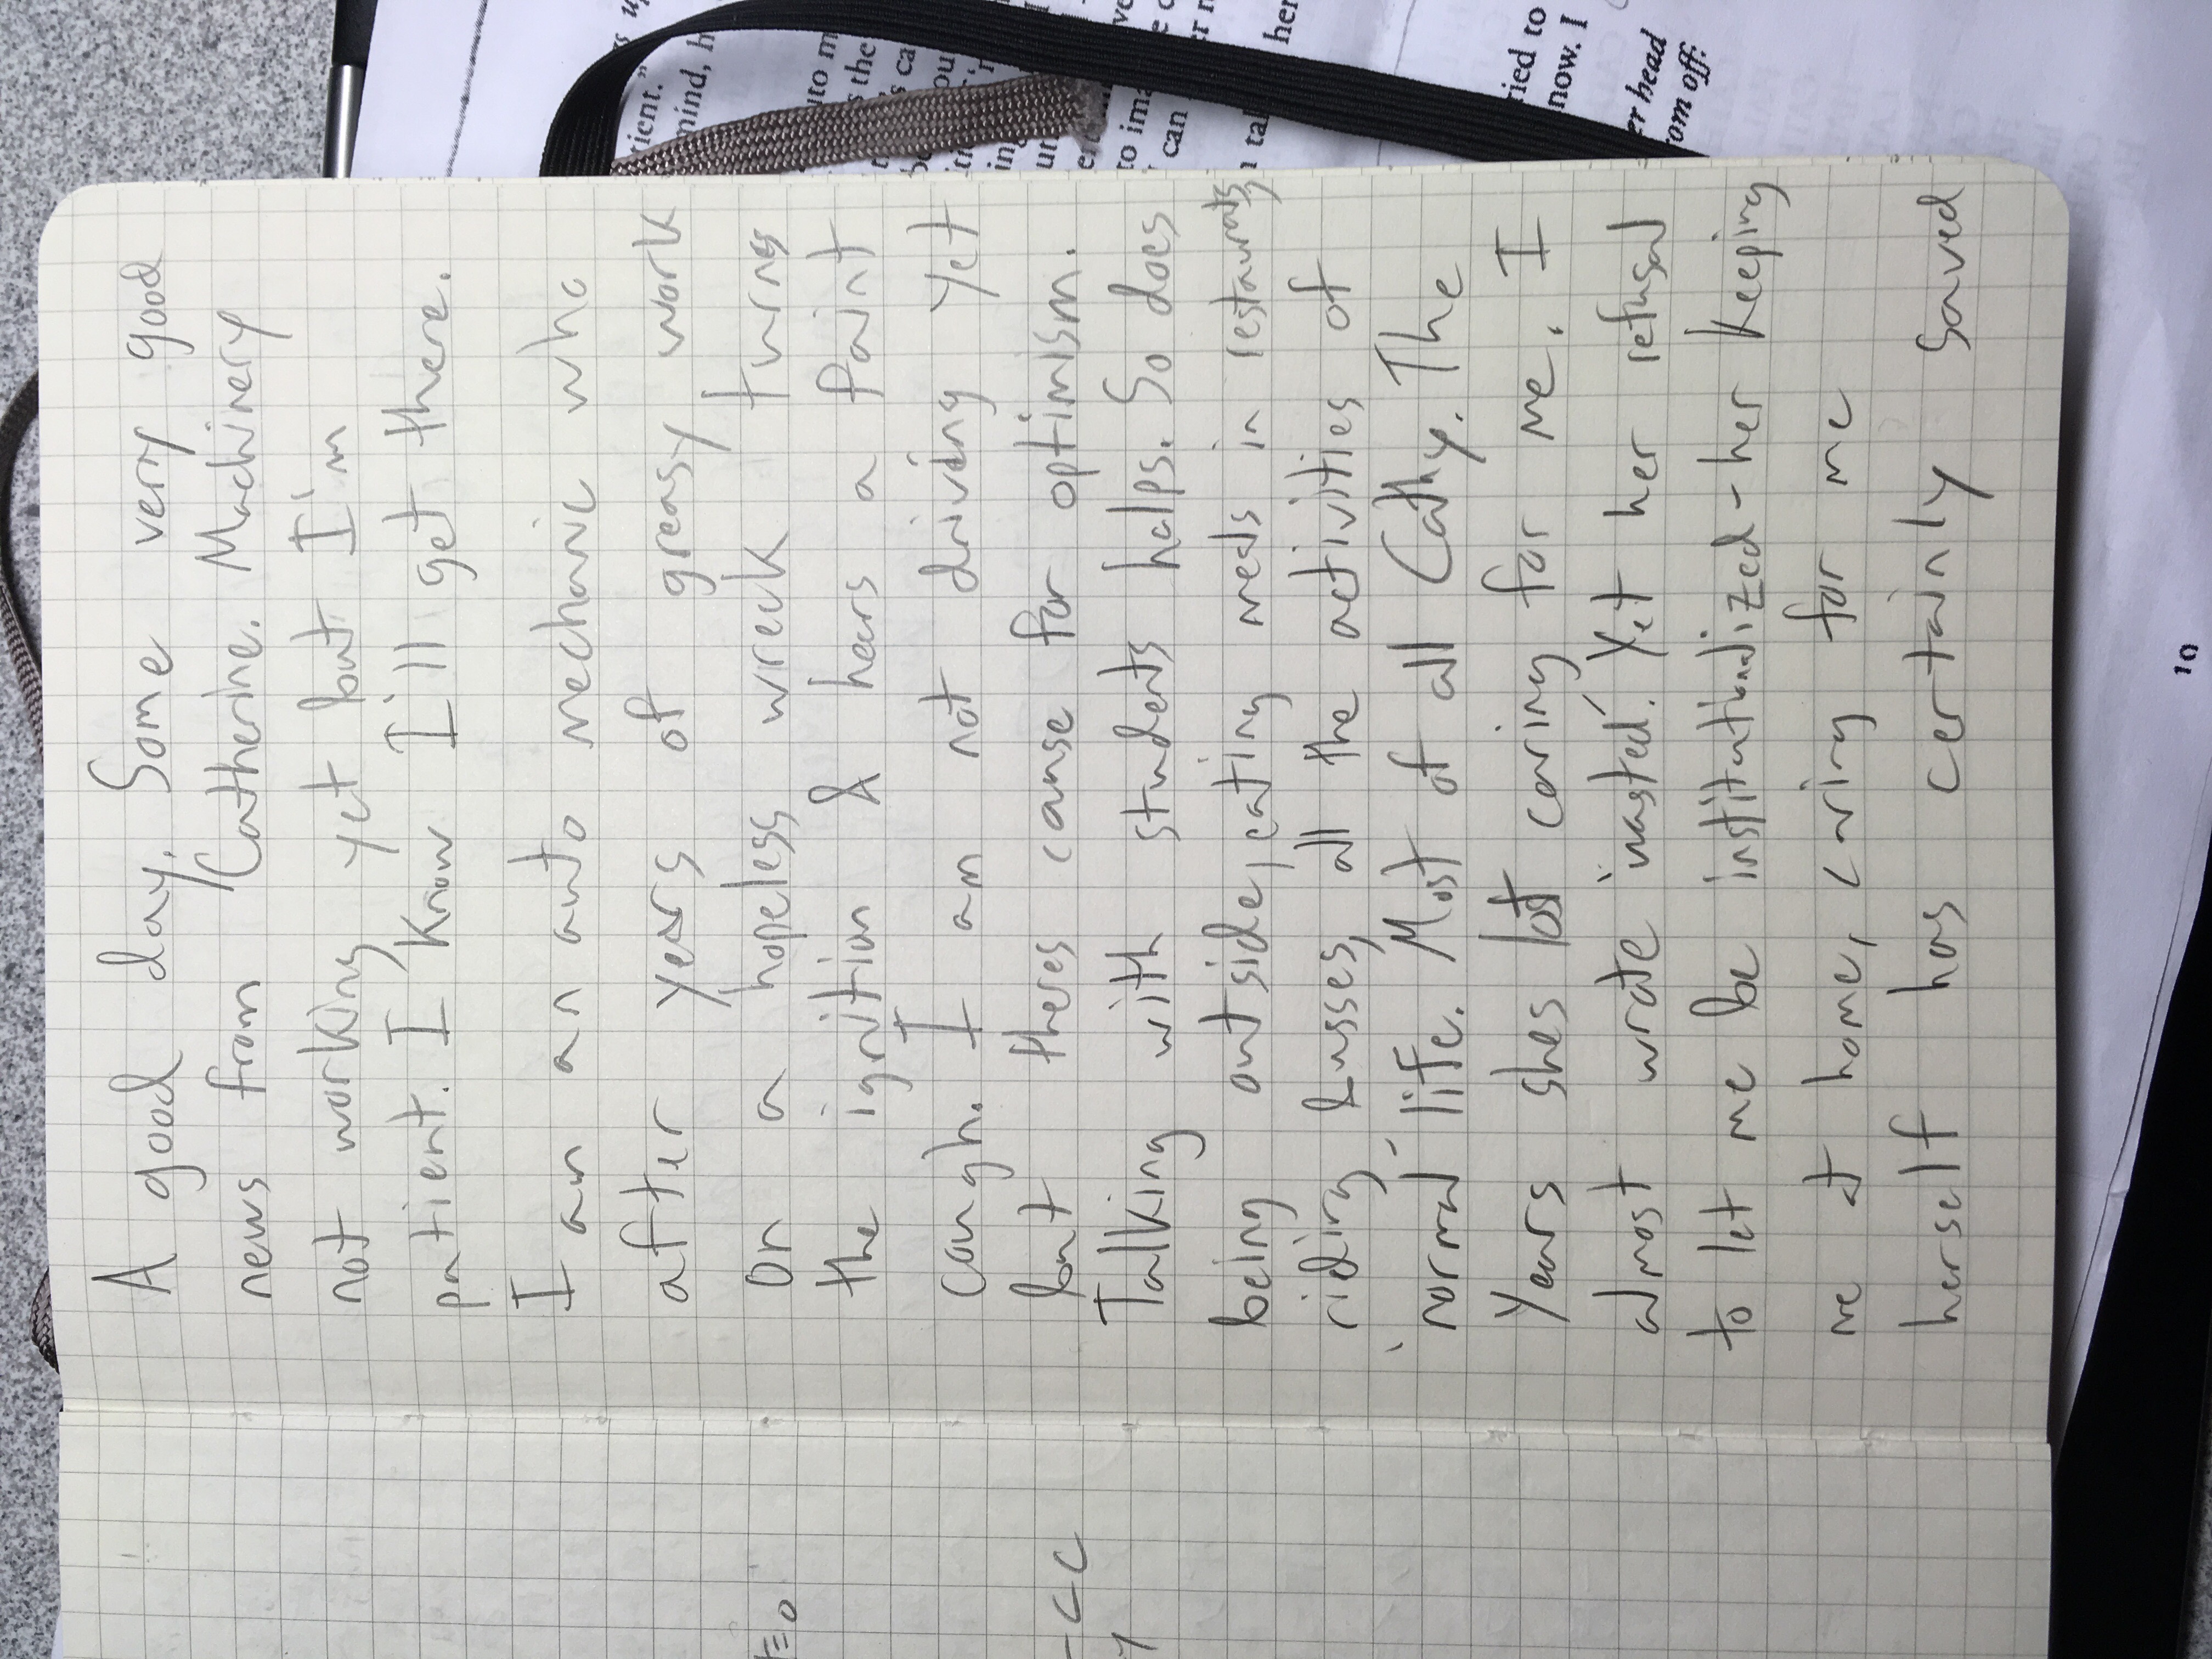 A good day. Some very good
news from Catherine. Machinery
not working yet but I'm
patient. I know I'll get there.
I am an auto mechanic who
after years of greasy work
on a hopeless wreck turns
the ignition & hears a faint
cough. I am not driving yet
but theres cause for optimism.
Talking with students helps. So does
being outside, eating meals in restaurants,
riding busses, all the activities of
'normal' life. Most of all Cathy. The
years shes lost caring for me. I
almost wrote 'wasted'. Yet her refusal
to let me be institutionalized - her keeping
me at home, caring for me
herself has certainly saved
rient."
mind, h
uto m
s the
s ca
to ima
can
n ta
her
ried to
now. I
er head
om off:
10